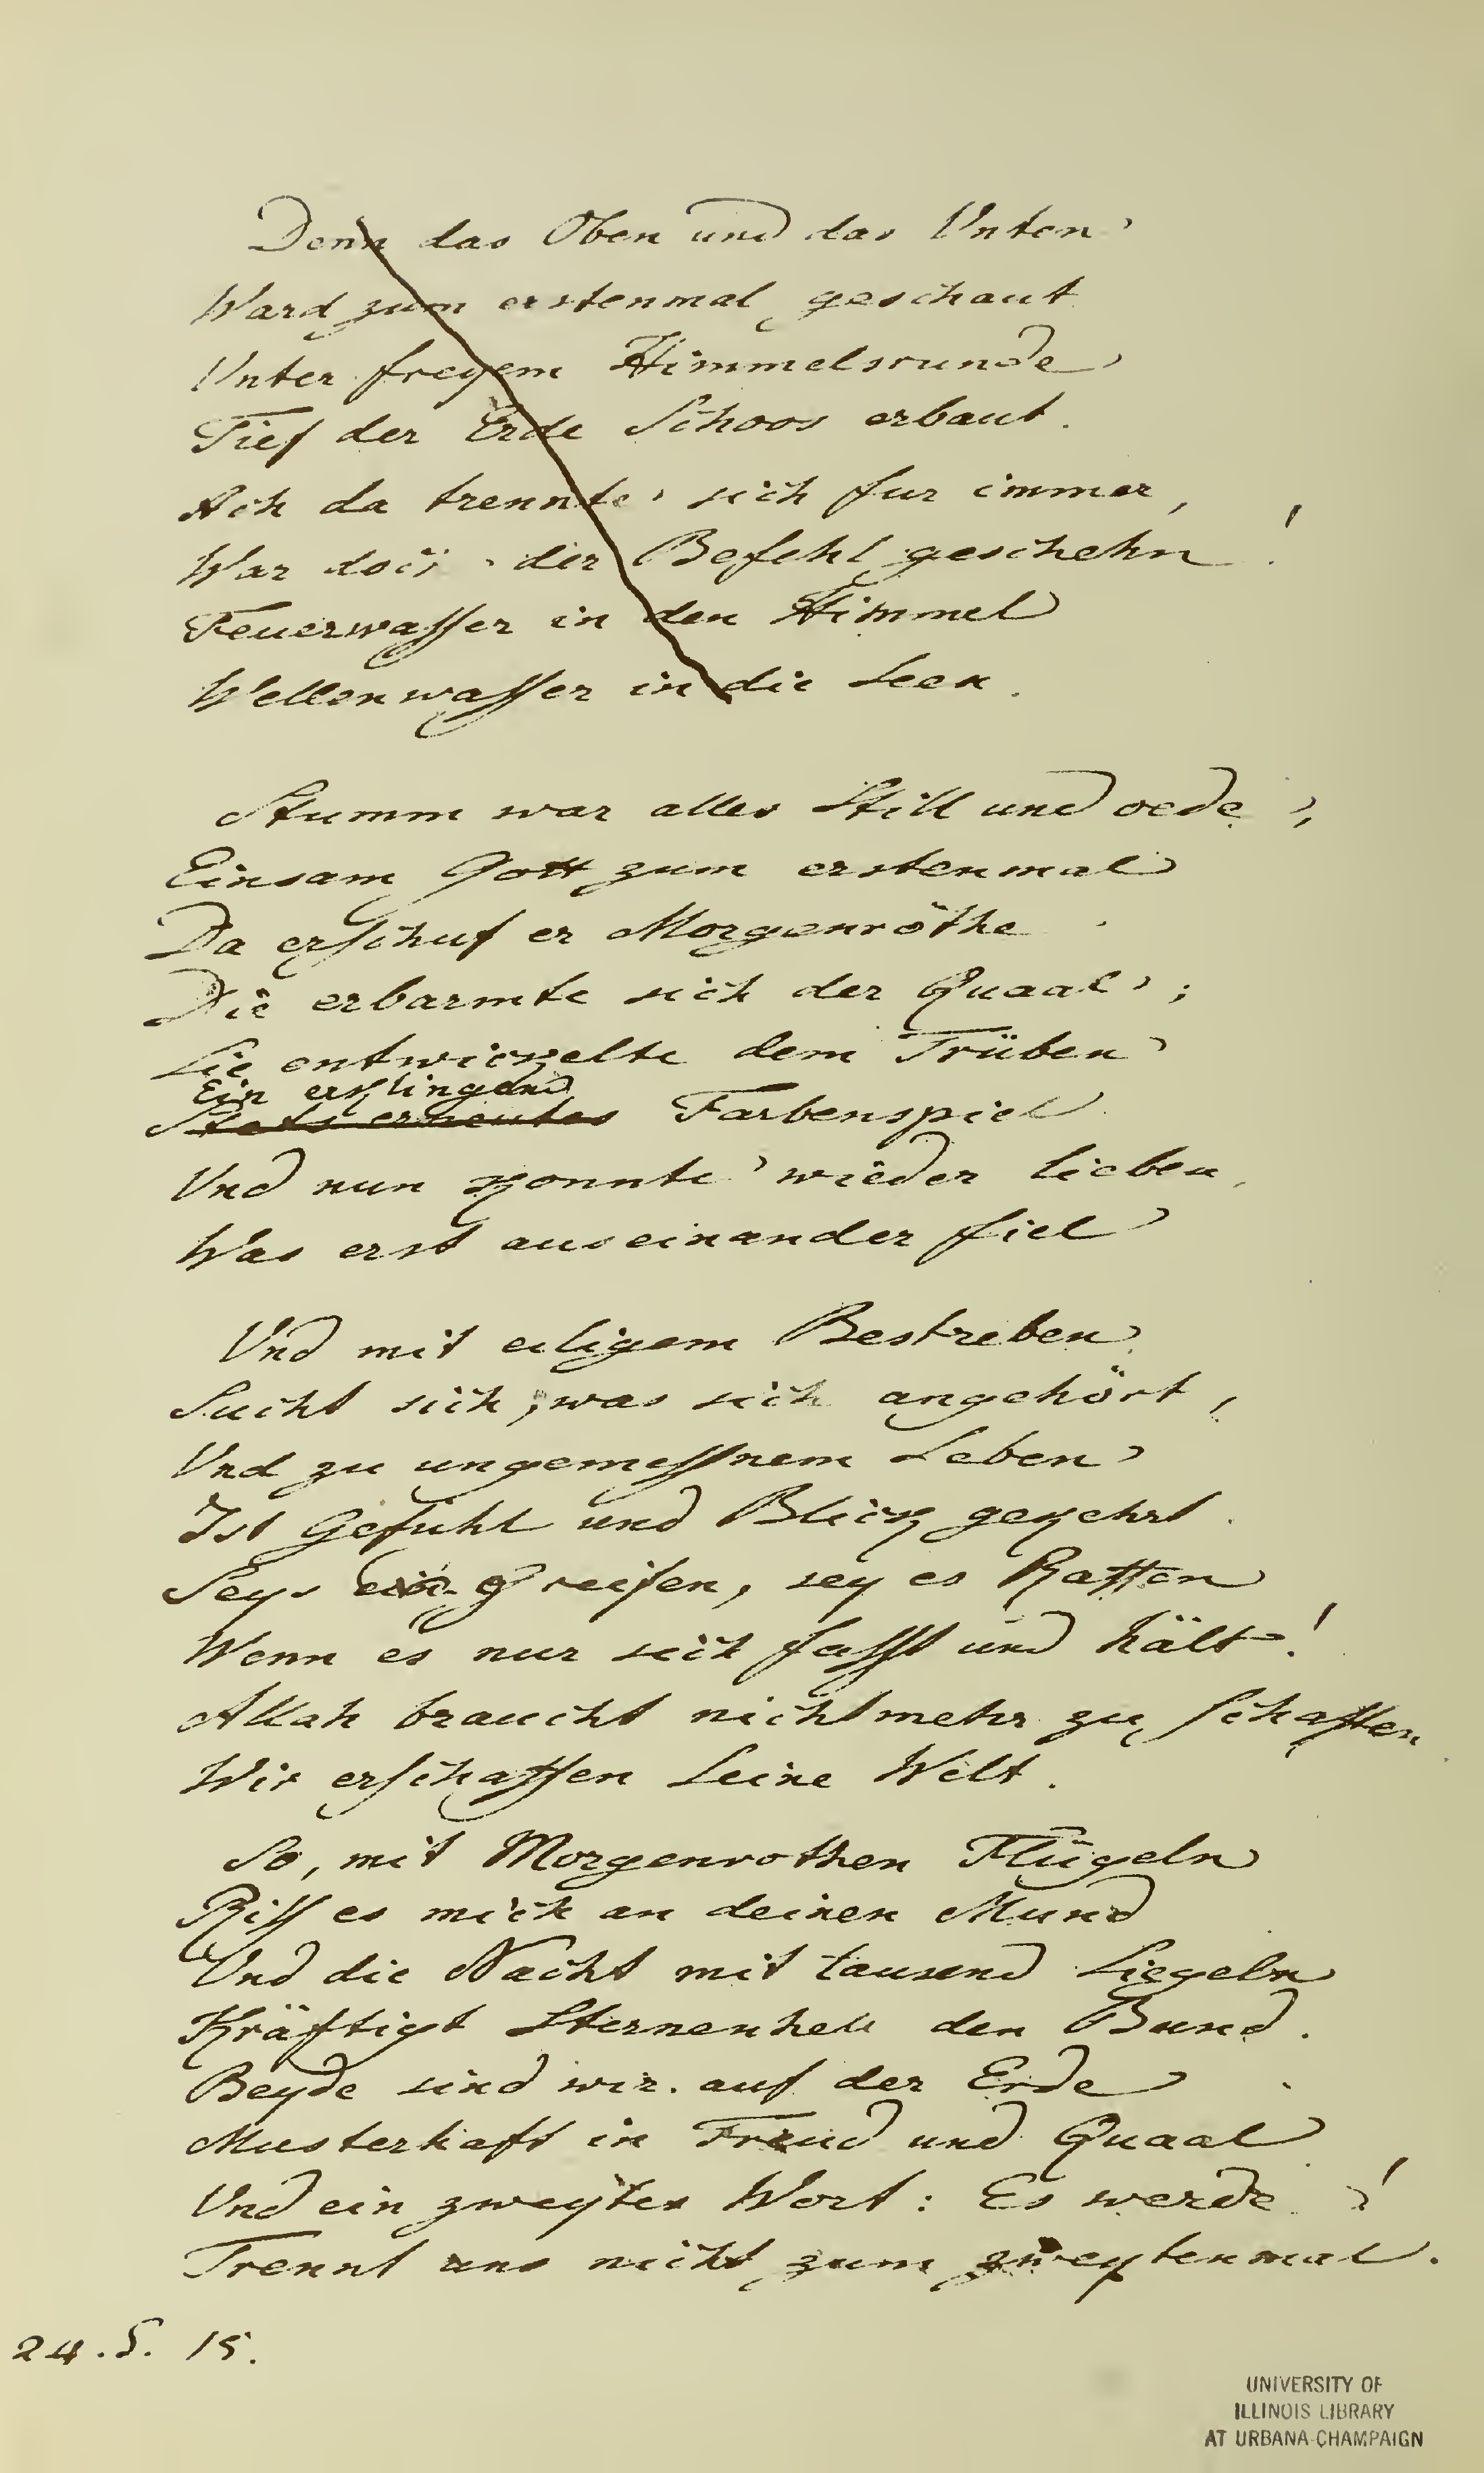 Denn das Oben und das Unten
Ward zum erstenmal geschaut
Unter freyem Himmelsrunde
Tief der Erde Schoos erbaut.
Ach da trennte sich fur immer,
War doch der Befehl geschehn!
Feuerwasser in den Himmel
Wellenwasser in die Seen.
Stumm war alles still und oede,
Einsam Gott zum erstenmal
Da erschuf er Morgenröthe
Die erbarmte sich der Quaal;
Sie entwickelte dem Trüben
Ein erklingend
Stets erneutes Farbenspiel
Und nun konnte wieder lieben,
Was erst auseinander fiel
Und mit eiligem Bestreben
Sucht sich, was sich angehört,
Und zu ungemessnem Leben
Ist Gefuhl und Blick gekehrt.
Seys ein Greifen, sey es Raffen
Wenn es nur sich fasst und hält!
Allah braucht nicht mehr zu schaffen
Wir erschaffen Seine Welt.
So, mit Morgenrothen Flügeln
Riss es mich an deinen Mund
Und die Nacht mit tausend Siegeln
Kräftigt Sternenhell den Bund.
Beyde sind wir auf der Erde
Musterhaft in Freud und Quaal
Und ein zweytes Wort: Es werde!
Trennt uns nicht zum zweytenmal.
24. S. 15.
UNIVERSITY OF
ILLINOIS LIBRARY
AT URBANA-CHAMPAIGN